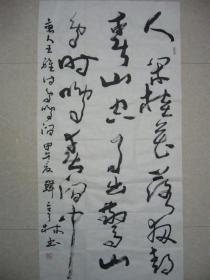 人閒桂花落夜靜
春山空月出驚山
鳥時鳴春澗中
唐人王維詩鳥鳴澗 甲午夏 林書